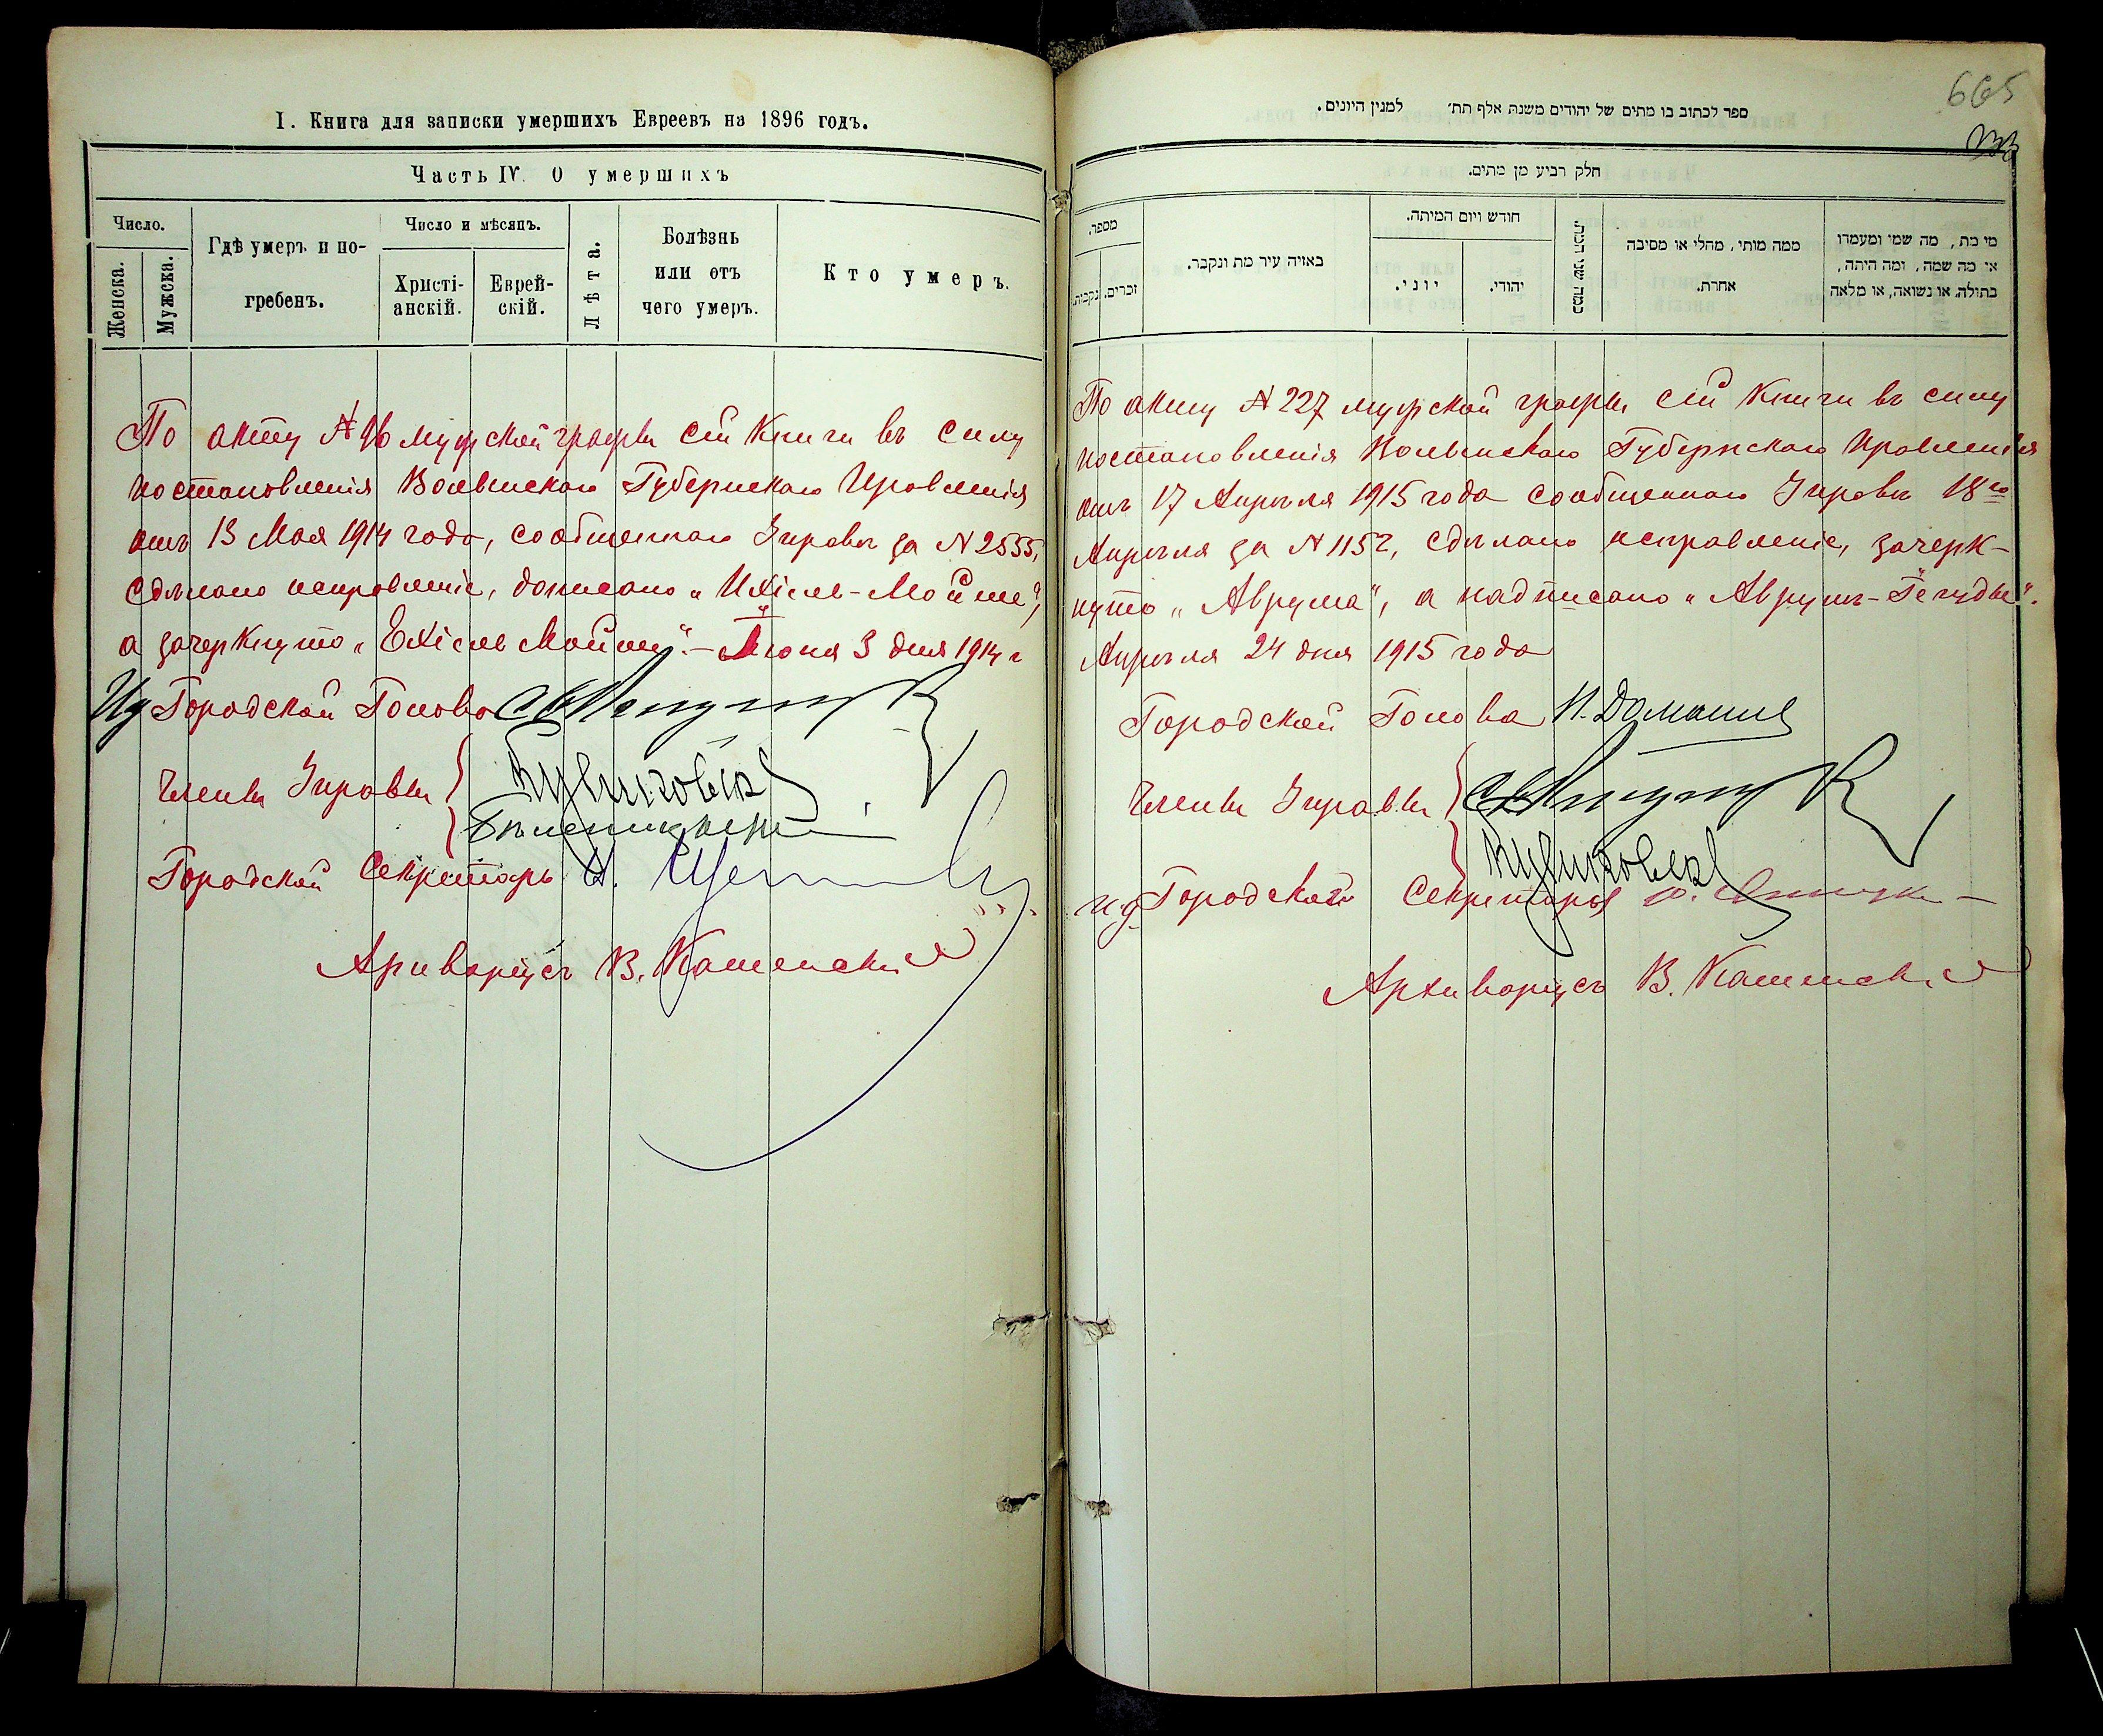 I. Книга для записки умершихъ Евреевъ на 1896 годъ.
Часть IV. О умершихъ
Число.
Женска.
Мужска.
Гдѣ умеръ и по-
гребенъ.
Число и мѣсяцъ.
Христі-
анскій.
Еврей-
скій.
Лѣта.
Болѣзнь
или отъ
чего умеръ.
Кто умеръ.
По акту № 16 мужской графы сей Книги въ силу
постановленія Волынскаго Губернскаго Правленія
отъ 13 Мая 1914 года, сообщеннаго Управѣ за № 2555,
сдѣлано исправленіе, дописано „Ихіель-Мойше“,
а зачеркнуто „Ехіель Мойшу“. - Іюня 3 дня 1914 г
Ид Городской Голова
Члены Управы
Куликовск
Городской Секретарь
Архиваріусъ В. Каменскій
665
ספר לכתוב בו מתים של יהודים משנת אלף תת׳ למנין היונים.
חלק רביע מן מתים.
מספר.
נקבות.
זכרים.
באזיה עיר מת ונקבר.
חודש ויום המיתה.
יוני.
יהודי.
כמה שני
ממה מותי, מחלי או מסיבה
אחרת.
מי מת, מה שמי ומעמדו
אי מה שמה, ומה היתה,
בתולה, או נשואה, או מלאה
По акту № 227 мужской графы сей Книги въ силу
постановленія Волынскаго Губернскаго Правленія
отъ 17 Апрѣля 1915 года сообщеннаго Управѣ 18го
Апрѣля за № 1152, сдѣлано исправленіе, зачерк-
нуто „Аврума“, а надписано „Аврумъ-Гегуды“.
Апрѣля 24 дня 1915 года
Городской Голова
Члены Управы
Куликовск
и.д. Городской Секретарь
Архиваріусъ В. Каменскій